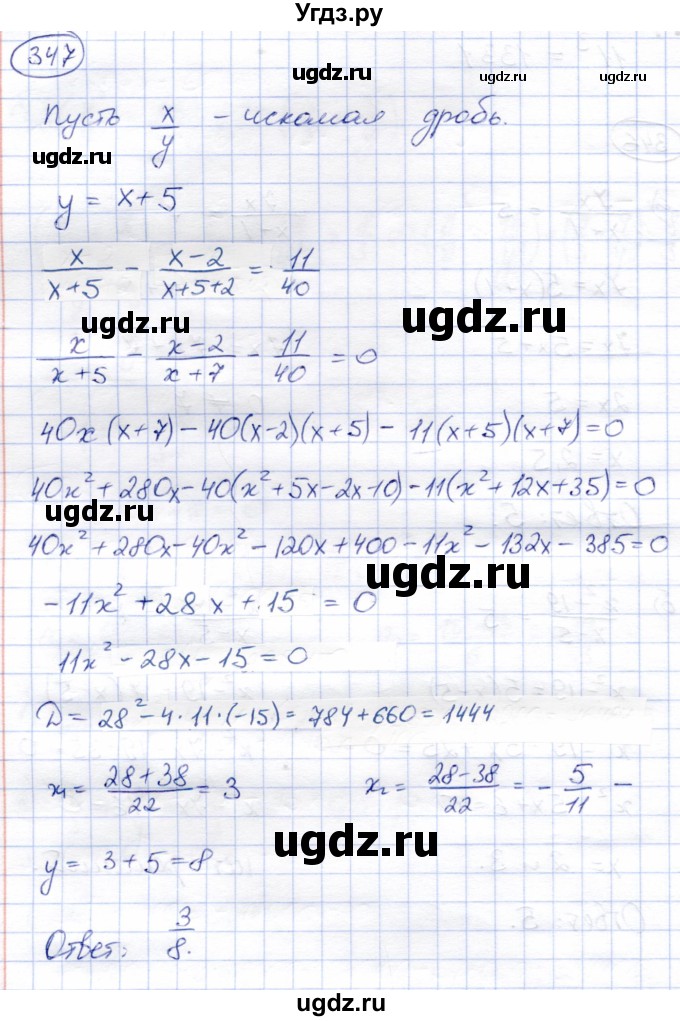 Угдз.ру
347
ugdz.ru
ugdz.ru
Пусть x/y - искомая дробь.
ugdz.ru
ugdz.ru
y = x+5
x/(x+5) - (x-2)/(x+5+2) = 11/40
ugdz.ru
ugdz.ru
x/(x+5) - (x-2)/(x+7) - 11/40 = 0
40x(x+7) - 40(x-2)(x+5) - 11(x+5)(x+7)=0
40x²+280x-40(x²+5x-2x-10)-11(x²+12x+35)=0
ugdz.ru
40x²+280x-40x²-120x+400-11x²-132x-385=0
ugdz.ru
-11x²+28x+15 = 0
11x²-28x-15=0
D= 28²-4·11·(-15)= 784+660=1444
x₁= (28+38)/22 = 3 x₂= (28-38)/22 = -5/11 -
ugdz.ru
y= 3+5=8
Ответ: 3/8.
ugdz.ru
ugdz.ru